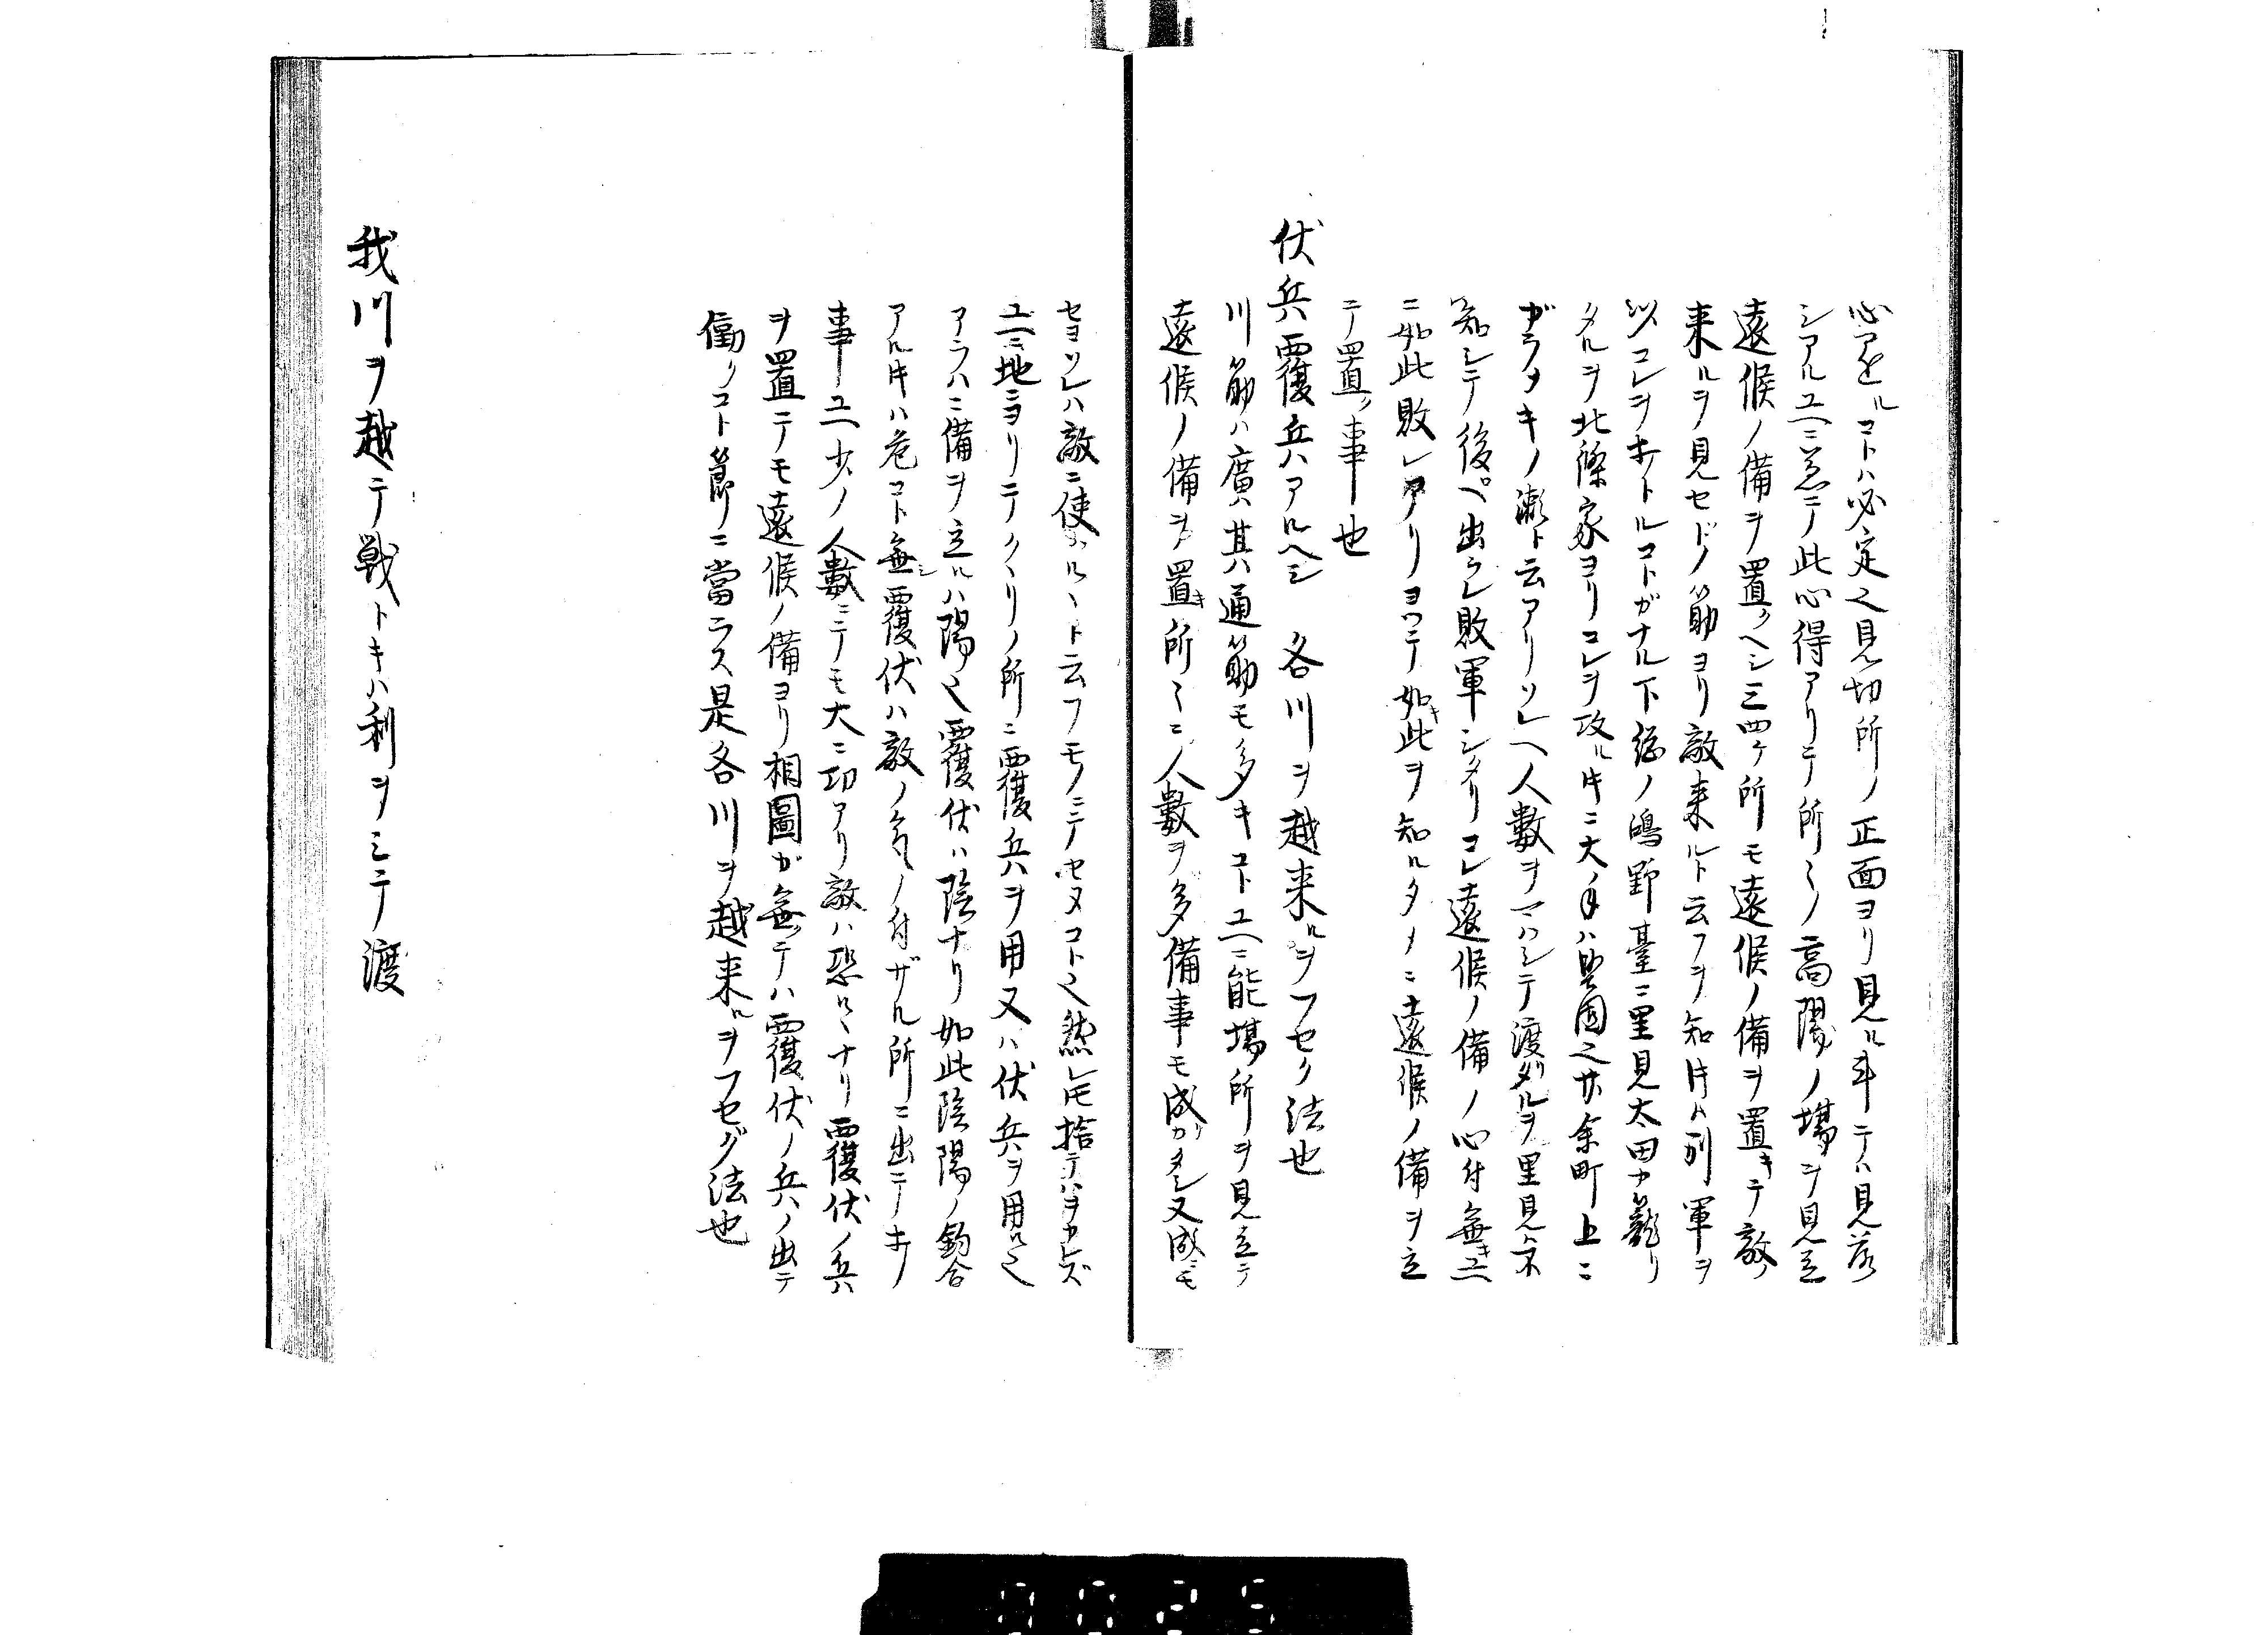 心アセルコトハ必定之見切所ノ正面ヨリ見ル斗テハ見落
シアルユヘニ兼テ此心得アリテ所〻ノ高隈ノ場ヲ見立
遠候ノ備ヲ置クヘシ三四ケ所モ遠候ノ備ヲ置キテ敵
来ルヲ見セドノ筋ヨリ敵来ルト云フヲ知ル片ハ別軍ヲ
以コレヲホトルコトガナル下総ノ鴻野臺ニ里見太田カ籠リ
タルヲ北條家ヨリコレヲ攻ル片ニ大ノ手ハ堅固之廿余町上ニ
ガラメキノ瀬ト云アリソレヘ人數ヲマハシテ渡タルヲ里見家不
知シテ後ヘ出ラレ敗軍シタリコレ遠候ノ備ノ心付無キユヘ
ニ如此敗レアリヨツテ如キ此ヲ知ルタメニ遠候ノ備ヲ立
テ置ク事也
伏兵覆兵ハアルヘシ 各川ヲ越来ルヲフセク法也
川筋ハ廣ハ其ハ通筋モ多キコトユヘニ能場所ヲ見立テ
遠候ノ備ヲ置キ所〻ニ人數ヲ多備事モ成リカタシ又成ニモ
セヨソレハ敵ニ使ハルヽト云フモノニテセヌコト之然レ𪜈捨テハヲカレズ
ユヘニ地ニヨリテクヽリノ所ニ覆兵ヲ用又ハ伏兵ヲ用ル之
アラハニ備ヲ立ルハ陽之覆伏ハ陰ナリ如此陰陽ノ釣合
アル片ハ危コト無シ覆伏ハ敵ノ氣ノ付ザル所ニ出テホノ
事ユヘ少ノ人數ニテモ大ニ功アリ敵ハ恐ルヽナリ覆伏ノ兵
ヲ置テモ遠候ノ備ヨリ相圖ガ無テハ覆伏ノ兵ノ出テ
働クコト節ニ當ラス是各川ヲ越来ルヲフセグ法也
我川ヲ越テ戦トキハ利ヲミテ渡